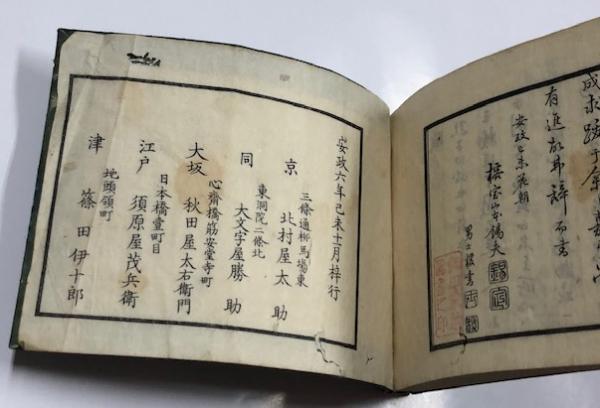 成求跋于余
有進於斯辞而書
安政己未花朝
男士諶書
安政六年己未十一月梓行
三條通柳馬場東
京　北村屋太助
東洞院二條北
同　大文字屋勝助
心齋橋筋安堂寺町
大坂　秋田屋太右衛門
日本橋壹町目
江戸　須原屋茂兵衛
地頭領町
津　篠田伊十郎